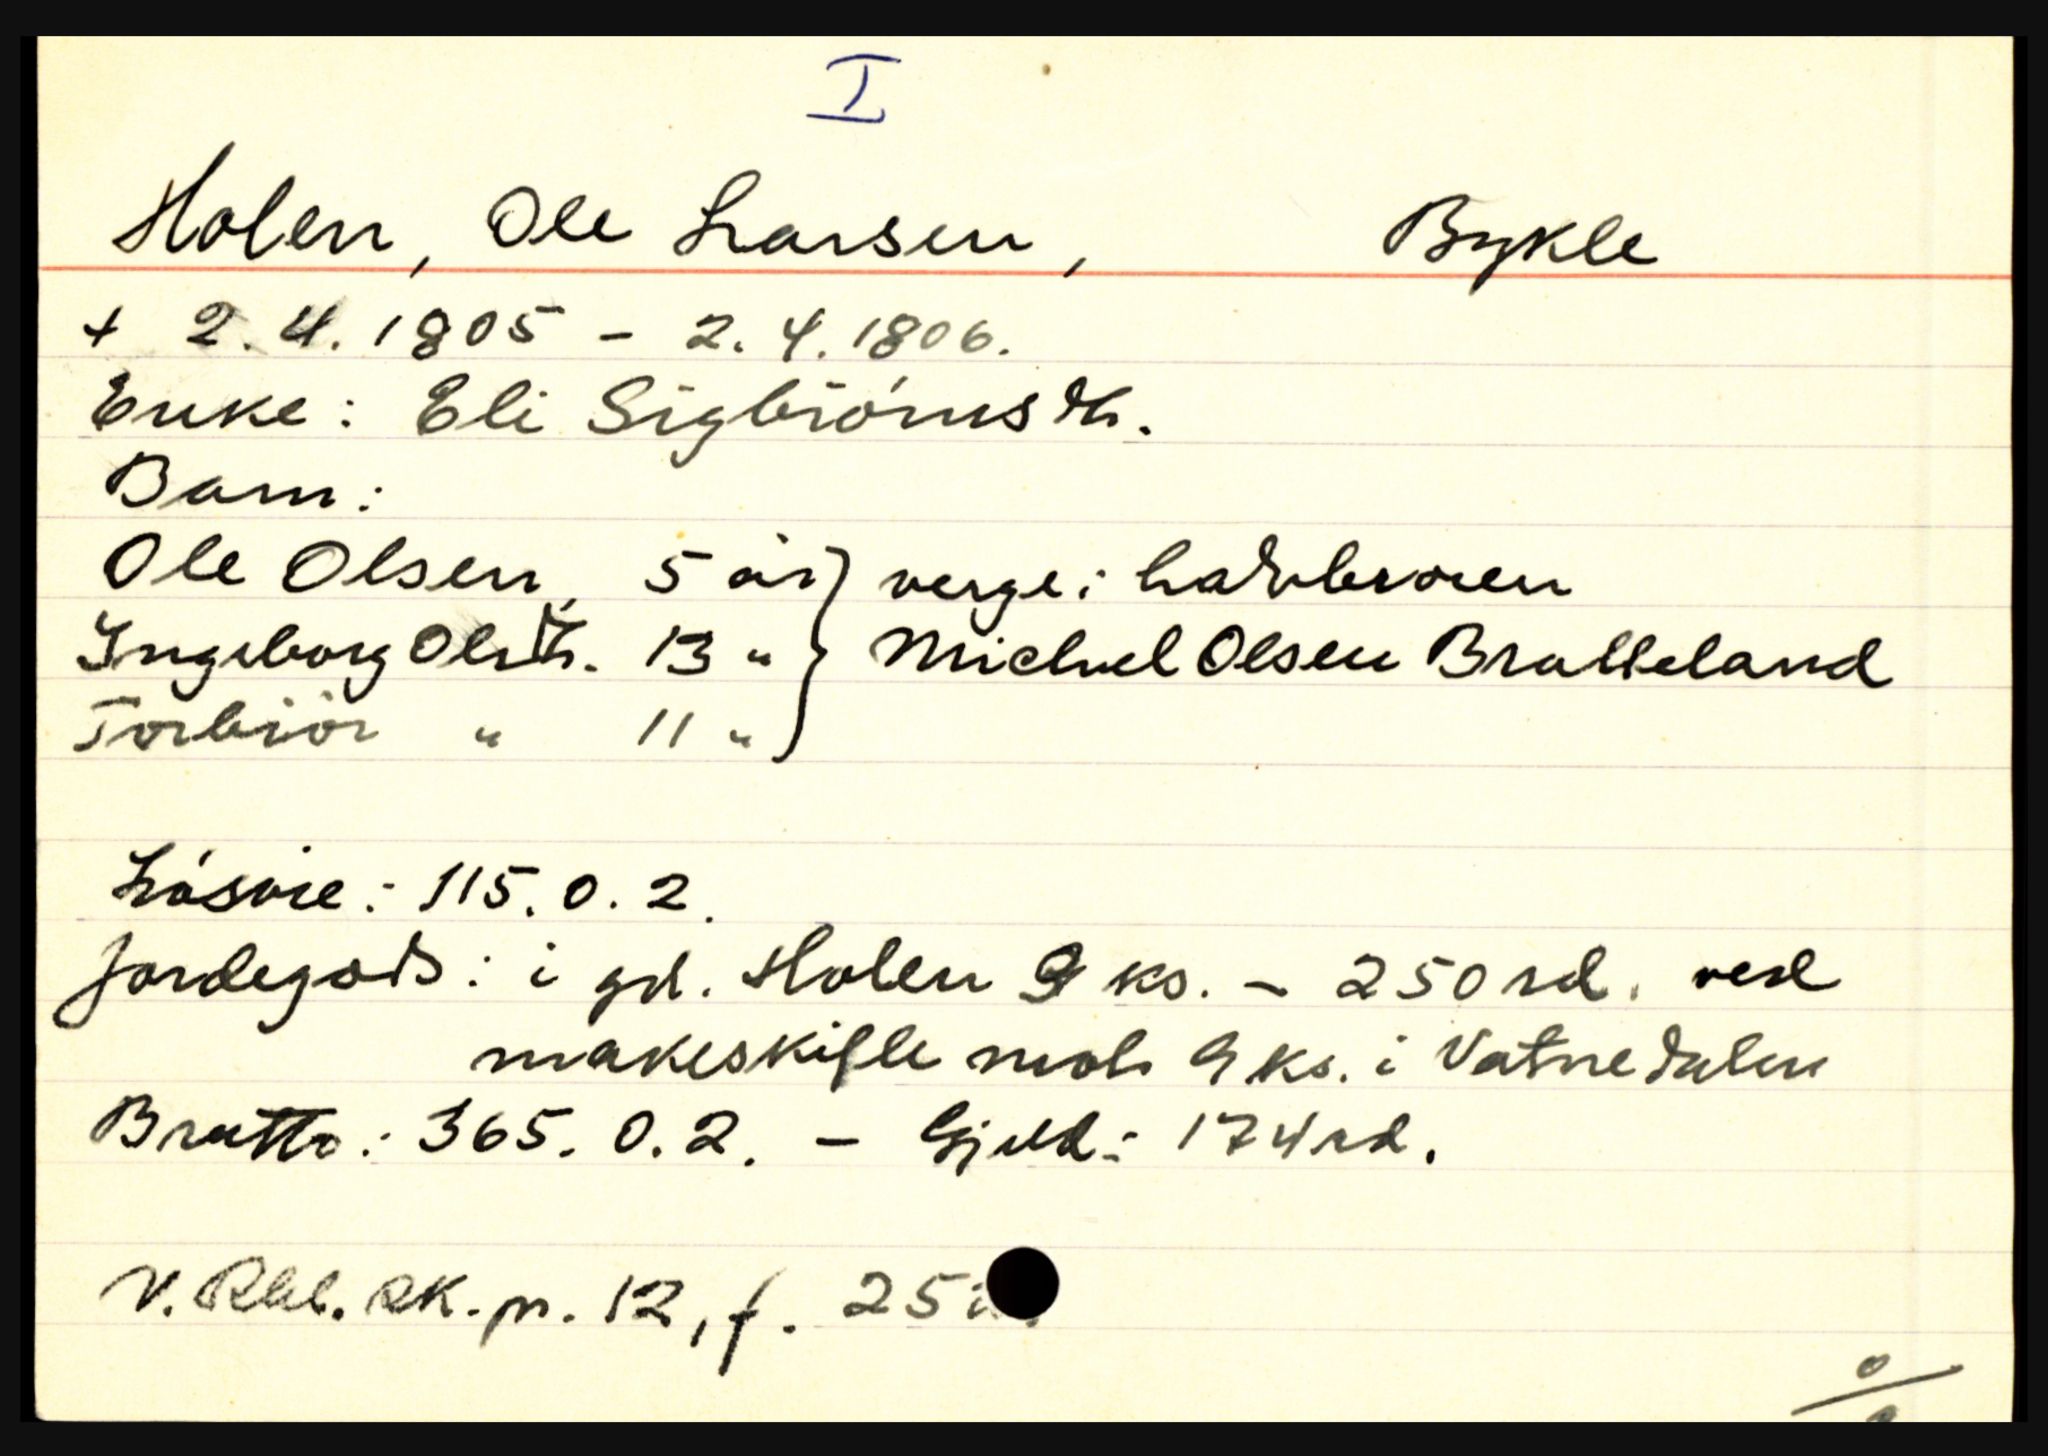 I
Holen, Ole Larsen, Bykle
+ 2.4.1805 - 2.4.1806.
Enke: Eli Sigbiörnsdtr.
Barn:
Ole Olsen 5 år } verge: halvbroren
Ingeborg Olsdtr. 13 " } Michel Olsen Bratteland
Torbiör " 11 " }
Lösöre: 115.0.2.
Jordegods: i gd. Holen 9 ks. - 250 rd. ved
makeskifte mot 9 ks. i Vatnedalen
Brutto: 365.0.2. - Gjeld: 174 rd.
V. Rbl. sk.pr. 12, f. 25